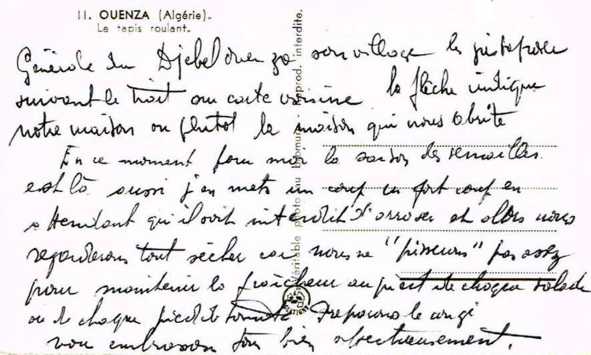 11. OUENZA (Algérie).
Le tapis roulant.
Reprod. interdite.
Véritable photo au
Générale du Djebel Ouenza son village
suivant le trait sur carte voisine la flèche indique
notre maison ou plutot la maison qui nous abrite
En ce moment pour moi la saison des semailles
est là aussi j'en mets un coup un fort coup en
attendant qu'il soit interdit d'arroser et alors nous
regarderons tout sécher car nous ne "pisserons" pas assez
pour maintenir la fraîcheur au pied de chaque salade
ou de chaque pied de tomate
vous embrassons tous bien affectueusement.